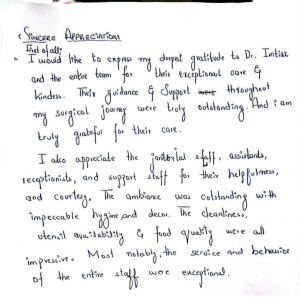 SINCERE APPRECIATION
First of all,
I would like to express my deepest gratitude to Dr. Imtiaz
and the entire team for their exceptional care &
kindess. Their guidance & Support were throughout
my surgical journey were truly outstanding. And i am
truly grateful for their care.
I also appreciate the janitorial staff, assistants,
receptionists, and support staff for their helpfulness,
and courtesy. The ambiance was outstanding with
impeccable hygine and decor. The cleanliness,
utensil availability & food quality were all
impressive. Most notably, the service and behavior
of the entire staff were exceptional.